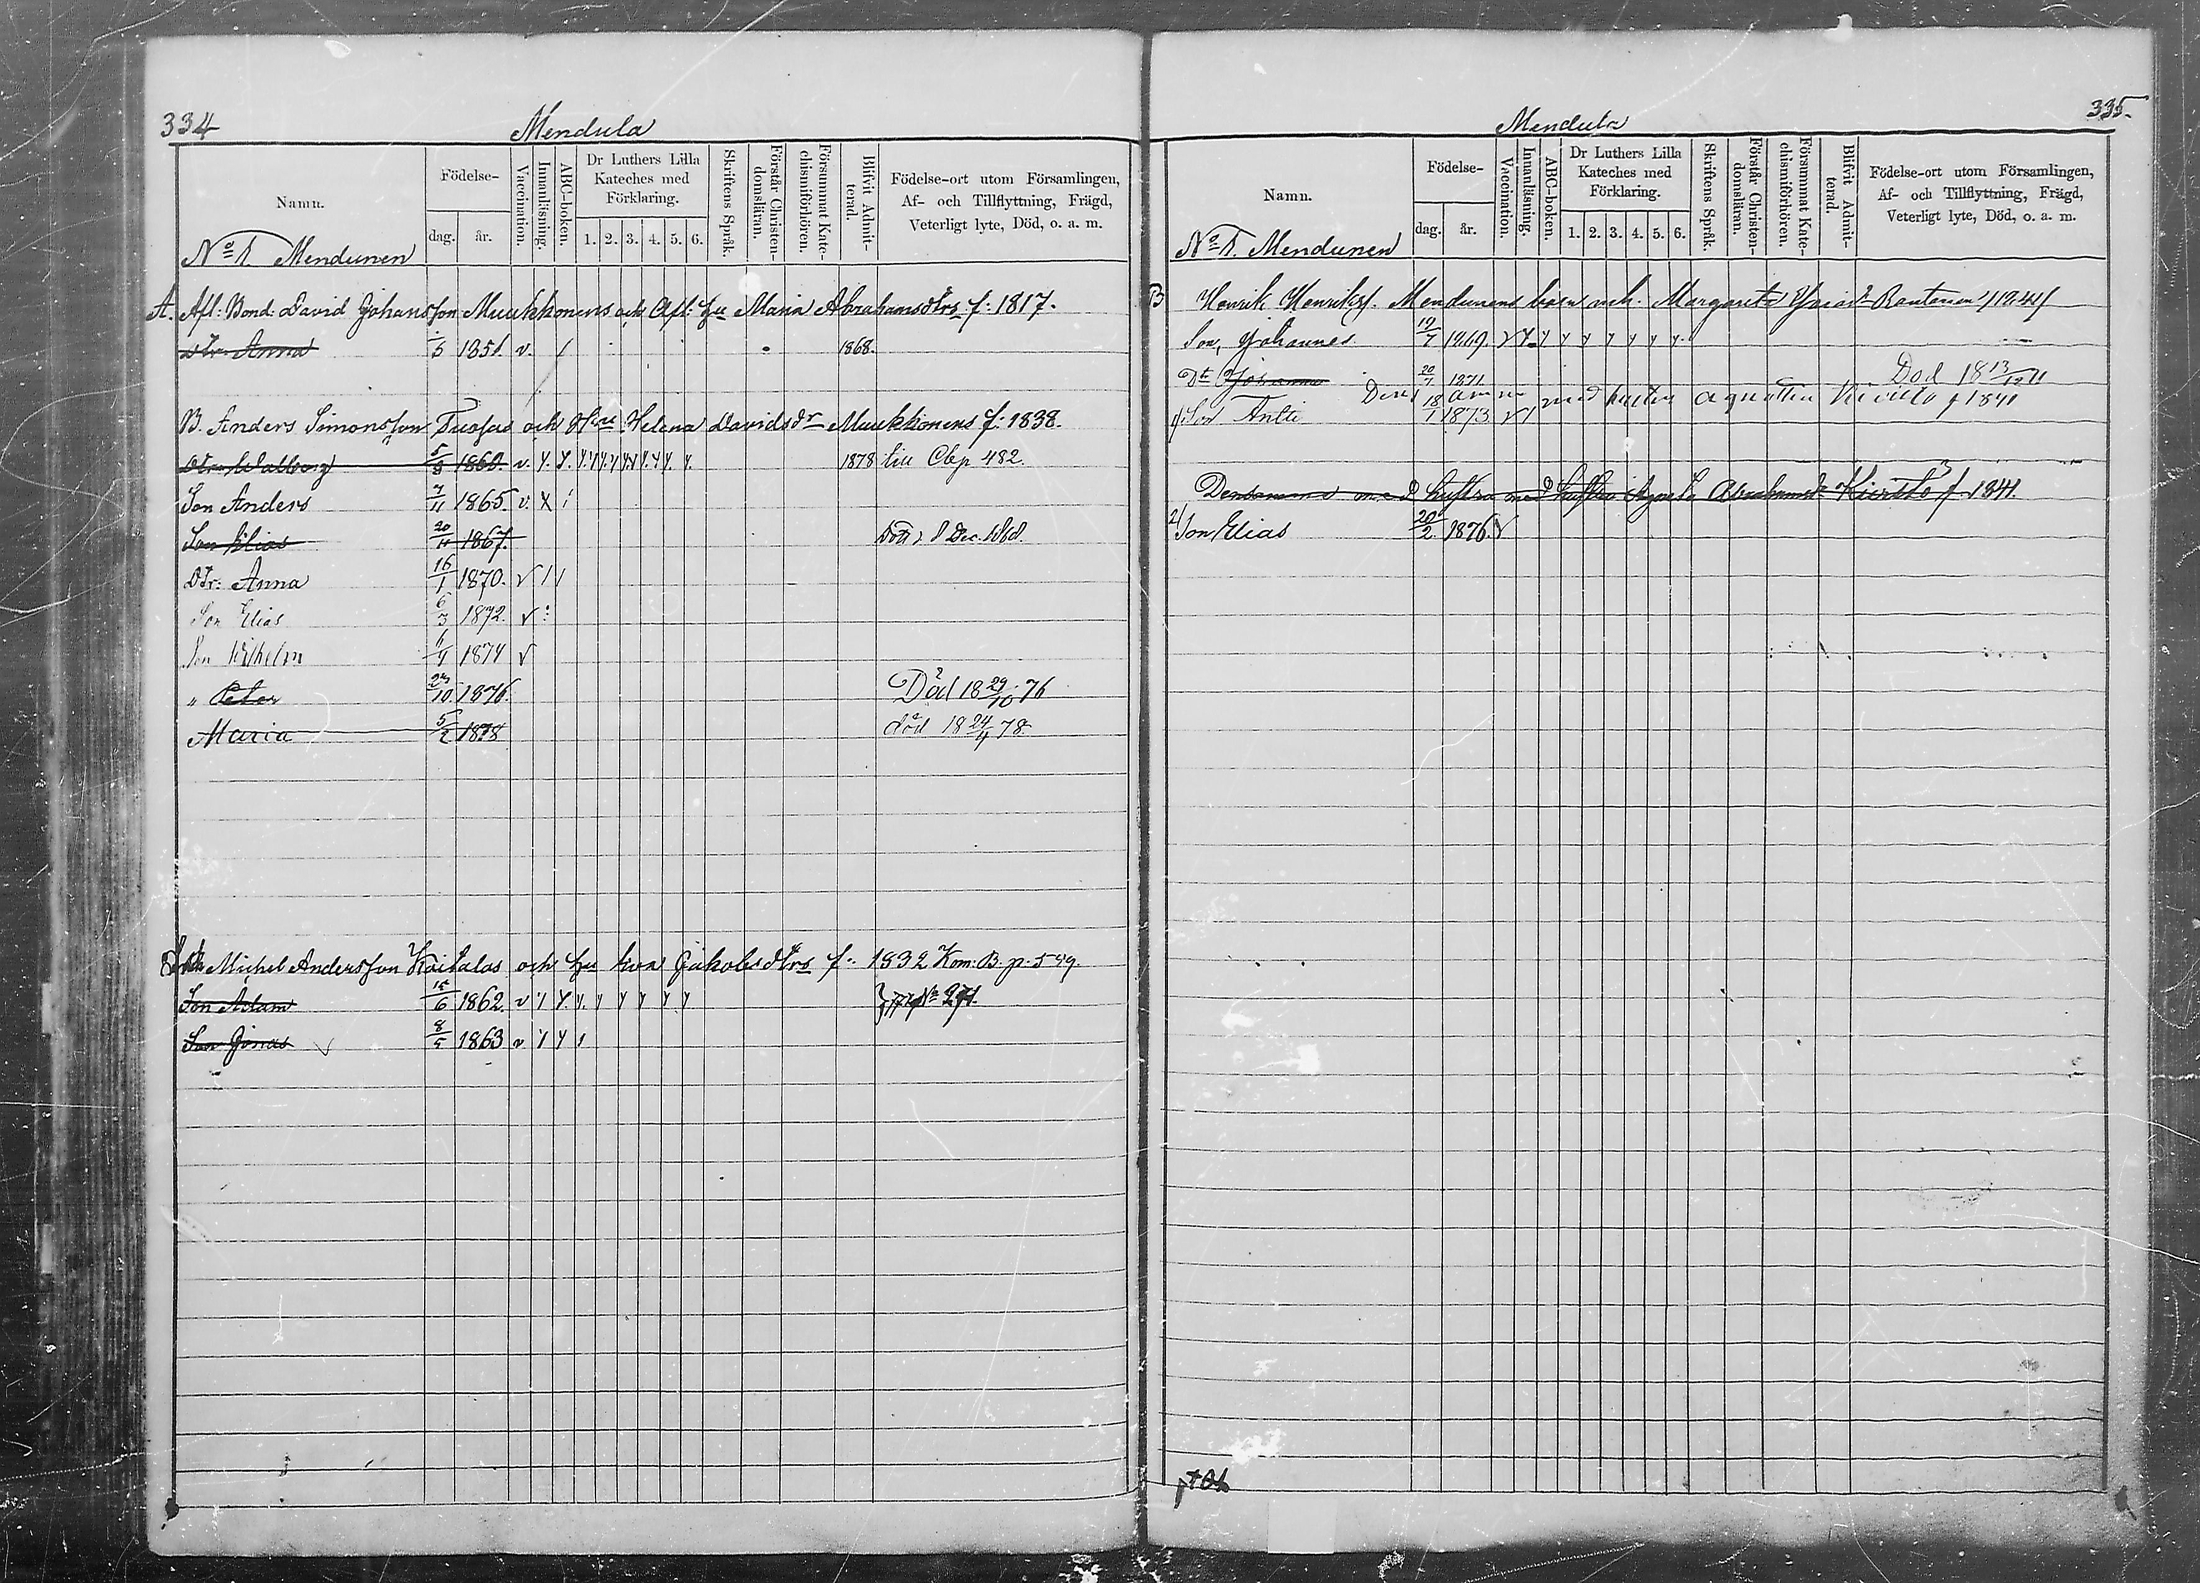 334
Mendula
Namn.
Födelse-
dag.
år.
Vaccination.
Innanläsning.
ABC-boken.
Dr Luthers Lilla
Kateches med
Förklaring.
1. 2. 3. 4. 5. 6.
Skriftens Språk.
Förstår Christen-
domsläran.
Försummat Kate-
chismiförhören.
Blifvit Admit-
terad.
Födelse-ort utom Församlingen,
Af- och Tillflyttning, Frägd,
Veterligt lyte, Död, o. a. m.
No 1. Mendunen
A. Afl: Bond. David Johansson Muukkonens och Afl: hu Maria Abrahamsdtrs f: 1817.
Dtr: Anna 1851. v. / 1868.
B. Anders Simonsson Tuosas och Hus Helena Davidsdr Muukkonens f: 1838.
Dtr. Walborg 1860. v. y. y. 1878 till Obp 482.
Son Anders 7/11 1865. v. x
Son Elias 1867. Död d. 8 Dec. 1868.
Dtr: Anna 16/1 1870. v / /
Son Elias 6/3 1872. v
Son Wilhelm 1874 v
" Peter 23/10. 1876. Död 18 29/10 76
Maria 5/2 1878 död 18 24/4 78.
Michel Andersson Kaitalas och hus Eva Jakobsdtrs f: 1832 Kom. B. p. 549.
Son Adam 15/6 1862. v y y. y. y y y y y
Son Jonas v 8/5 1863 v y y /
335.
Mendula
Namn.
Födelse-
dag.
år.
Vaccination.
Innanläsning.
ABC-boken.
Dr Luthers Lilla
Kateches med
Förklaring.
1. 2. 3. 4. 5. 6.
Skriftens Språk.
Förstår Christen-
domsläran.
Försummat Kate-
chismiförhören.
Blifvit Admit-
terad.
Födelse-ort utom Församlingen,
Af- och Tillflyttning, Frägd,
Veterligt lyte, Död, o. a. m.
No 1. Mendunen
B Henrik Henrikss. Mendunens barn m. h. Margareta Rautanen
Son, Johannes 19/7 1869. v y y y y y y y y
Dtr Johanna 20/7 1871. Död 18 13/12 71
1/ Son Antti 18/1 1873. v /
Densamma med hustru Agneta Abrahamsdr Kiesilä f. 1841.
2/ Son Elias 20/2 1876. v